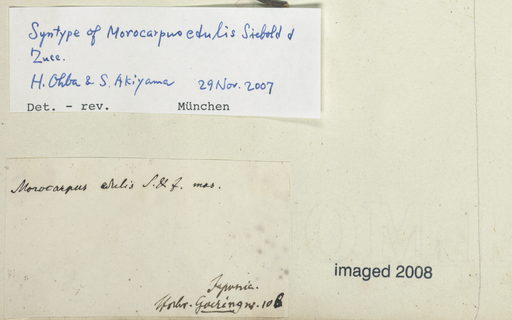 Syntype of Morocarpus edulis Siebold &
Zucc.
H. Ohba & S. Akiyama 29 Nov. 2007
Det. - rev. München
Morocarpus edulis S. & Z. mas.
Japonia.
Herbr. Goering
imaged 2008